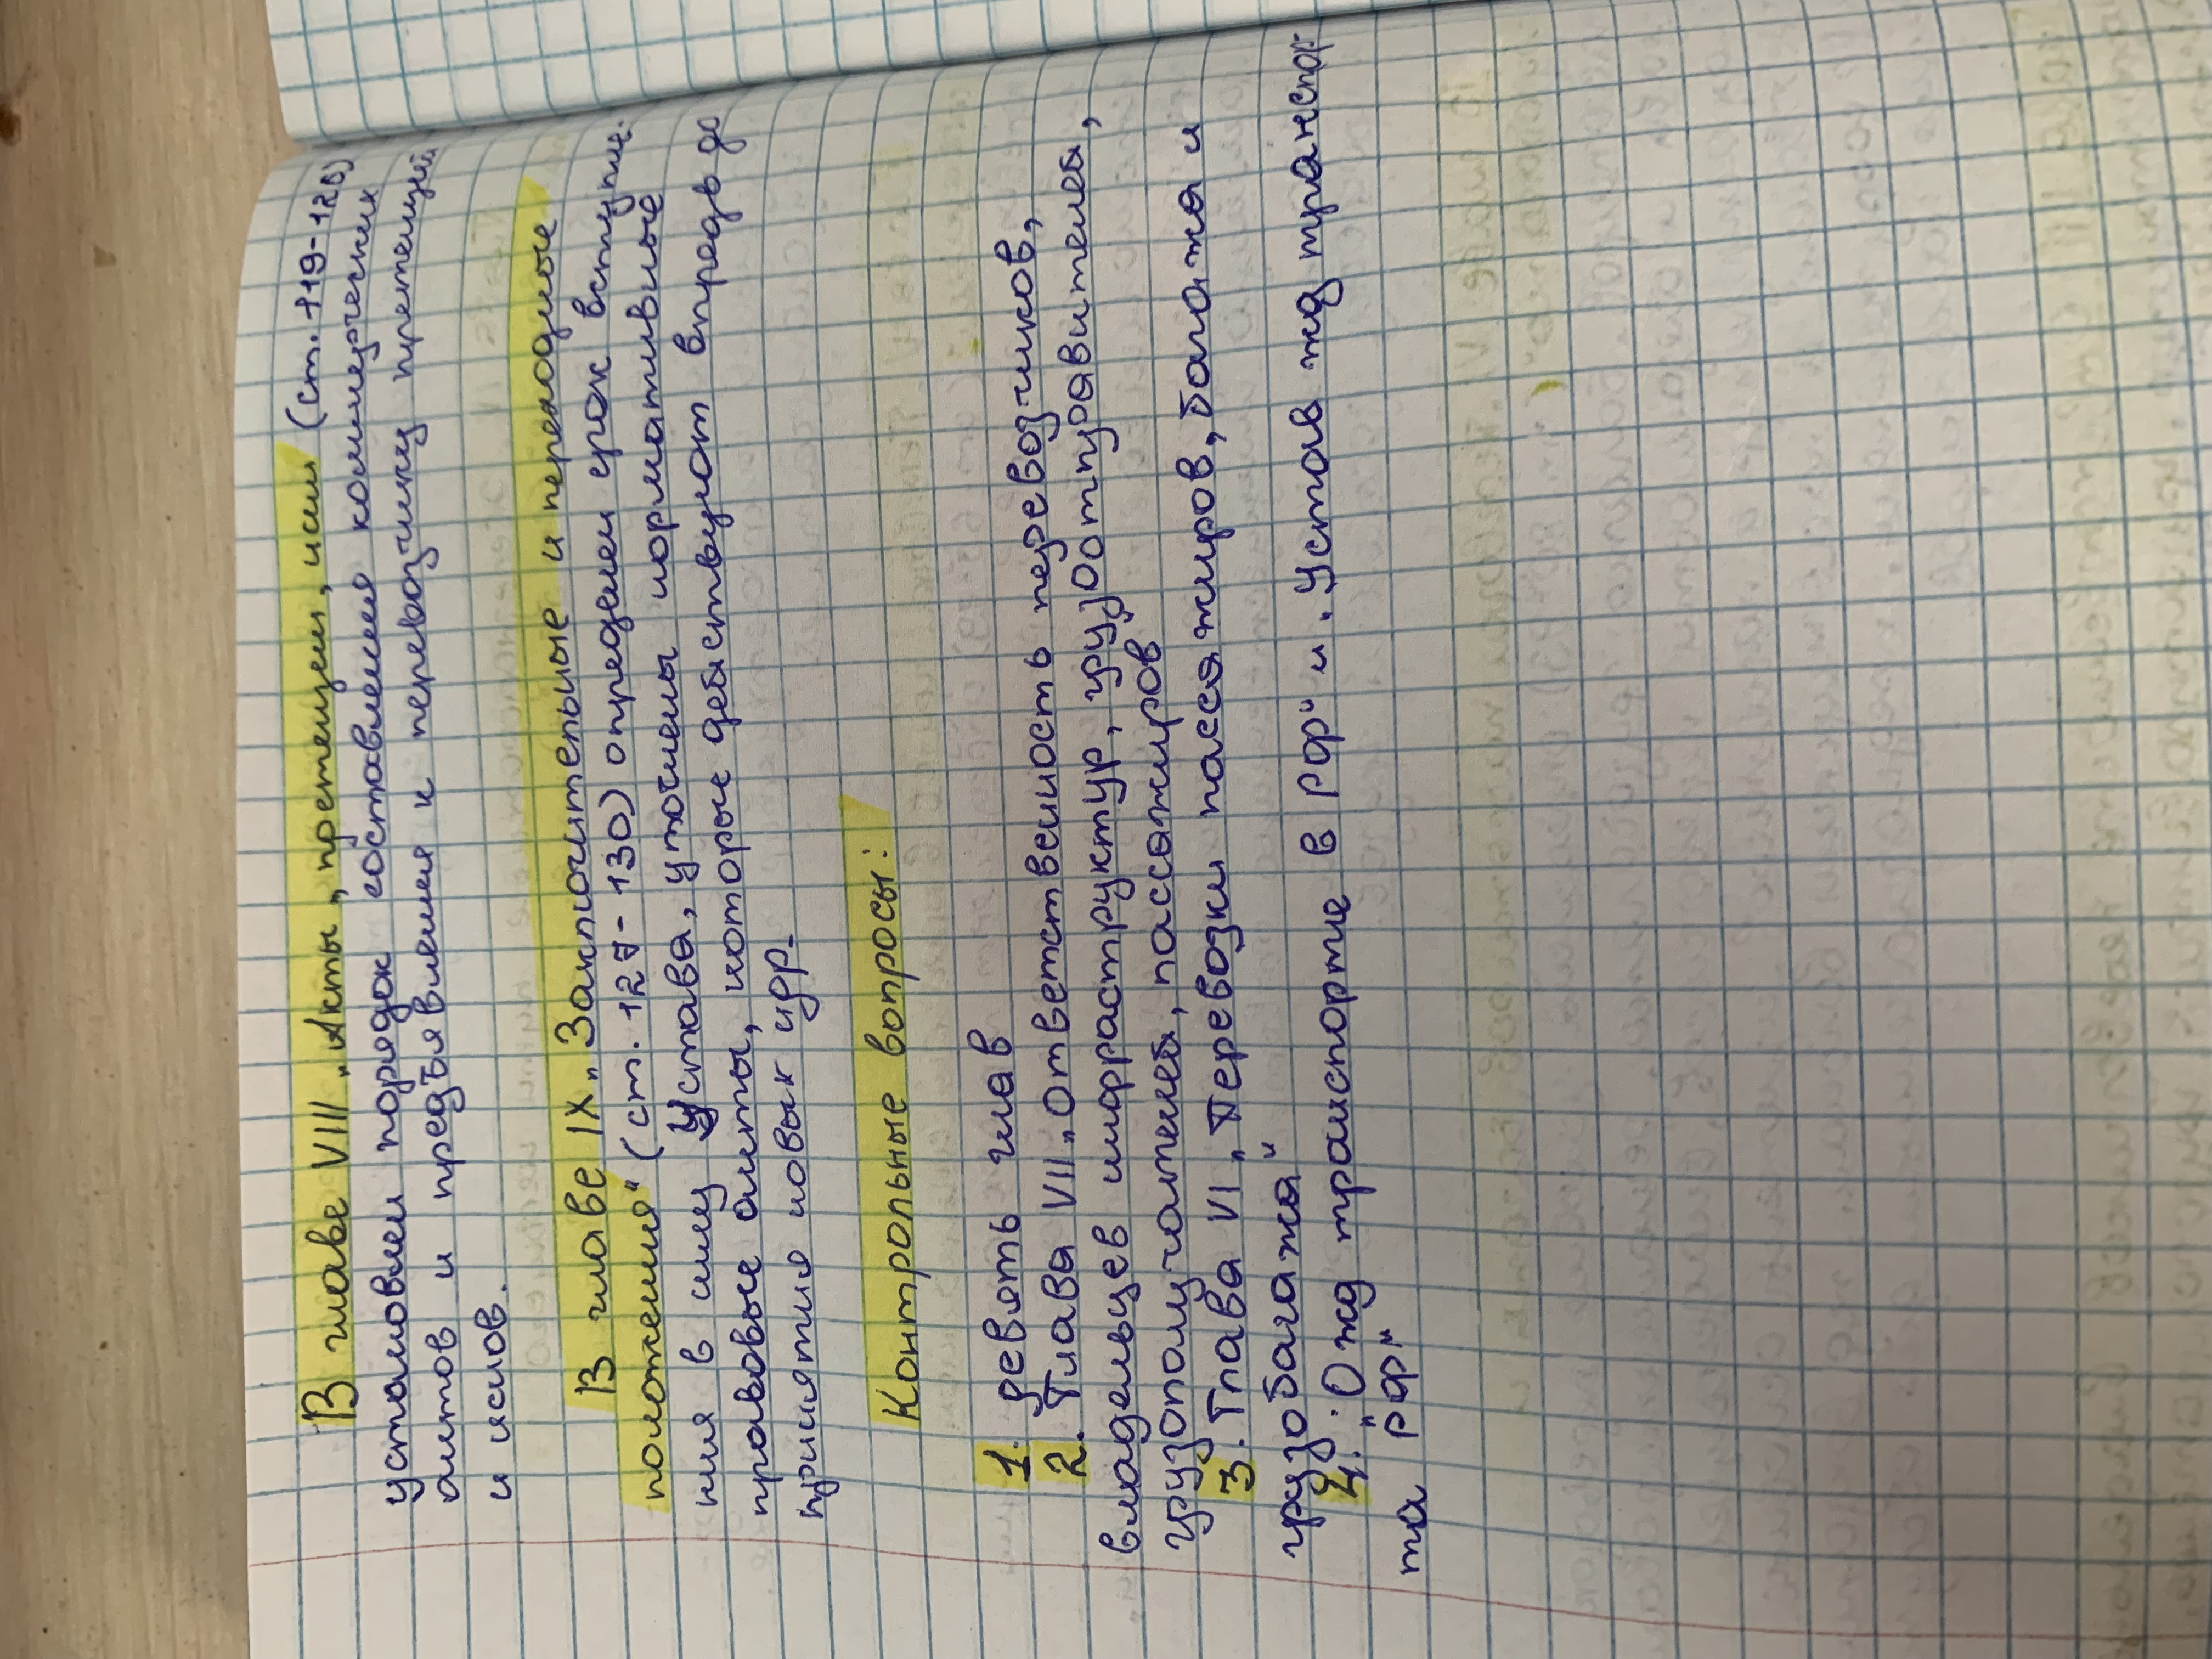 В главе VIII „Акты, претензии, иски (ст. 119-126)
установлен порядок составления коммерческих
актов и предъявления к перевозчику претензий
и исков.
В главе IX „Заключительные и переходные
положения" (ст. 127-130) определен срок вступле-
ния в силу Устава, уточнены нормативные
правовые акты, которые действуют впредь до
принятия новых идр.
Контрольные вопросы:
1. Девять глав
2. Глава VII „Ответственность перевозчиков,
владельцев инфраструктур, грузоотправителей,
грузополучателей, пассажиров
3. Глава VI „Перевозки пассажиров, багажа и
грузобагажа"
4. „О жд транспорте в РФ" и „Устав жд транспор-
та РФ"